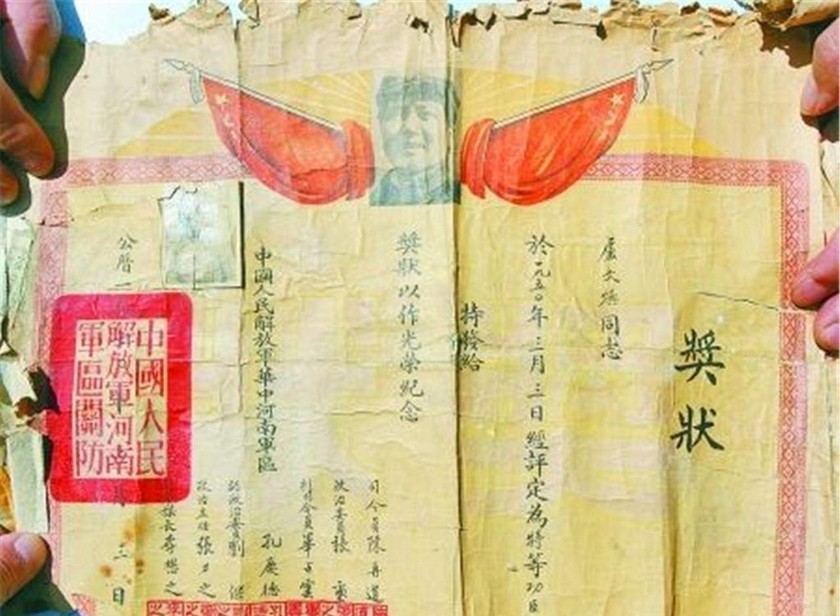 獎狀
同志
於一九五〇年三月三日經評定為特等功臣
特發給
獎狀以作光榮紀念
中國人民解放軍華中河南軍區
司令員陳再道
政治委員張
副司令員畢占雲
孔慶德
副政治委員劉
政治主任張
參謀長李懋之
公曆一
月三日
中國人民
解放軍河南
軍區關防